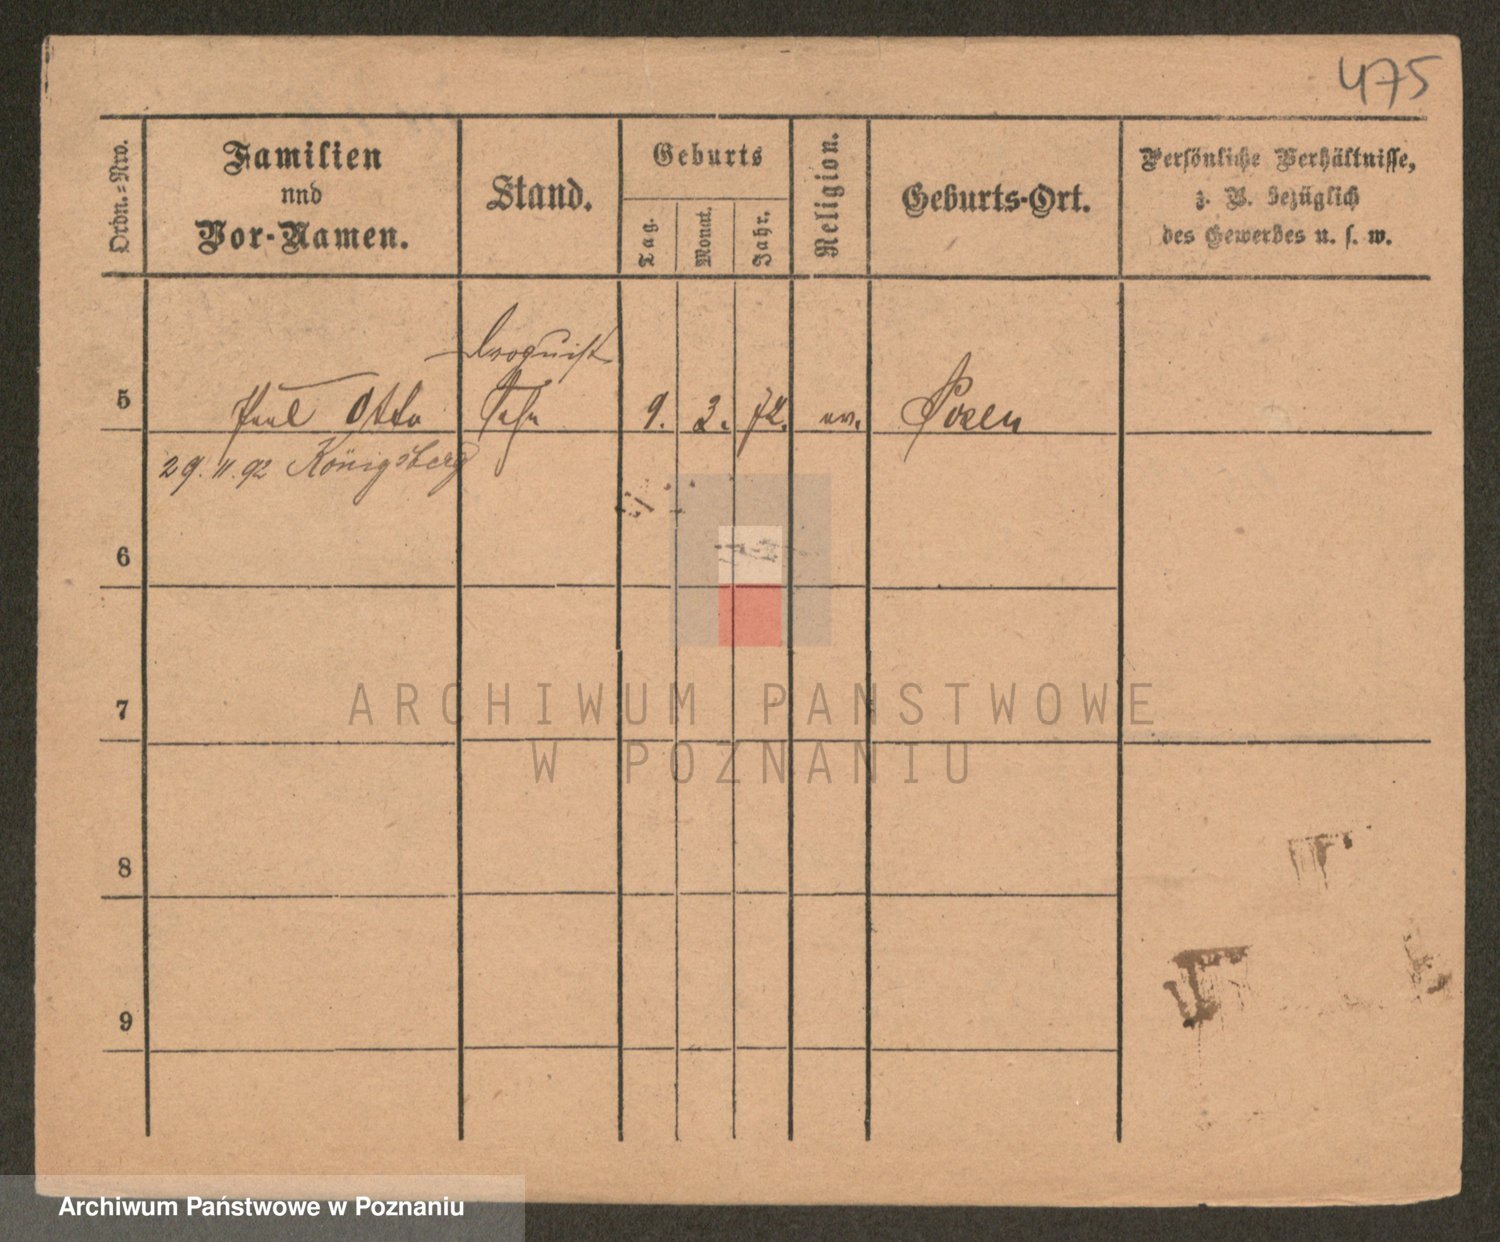 475
Ordn.=Nro.
Familien
und
Vor-Namen.
Stand.
Geburts
Tag.
Monat.
Jahr.
Religion.
Geburts-Ort.
Persönliche Verhältnisse,
z. B. bezüglich
des Gewerbes u. s. w.
Droguist
5 Paul Otto Sohn 9. 3. 72. ev. Posen
29. 11. 92 Königsberg
6
7
8
9
ARCHIWUM PAŃSTWOWE
W POZNANIU
Archiwum Państwowe w Poznaniu